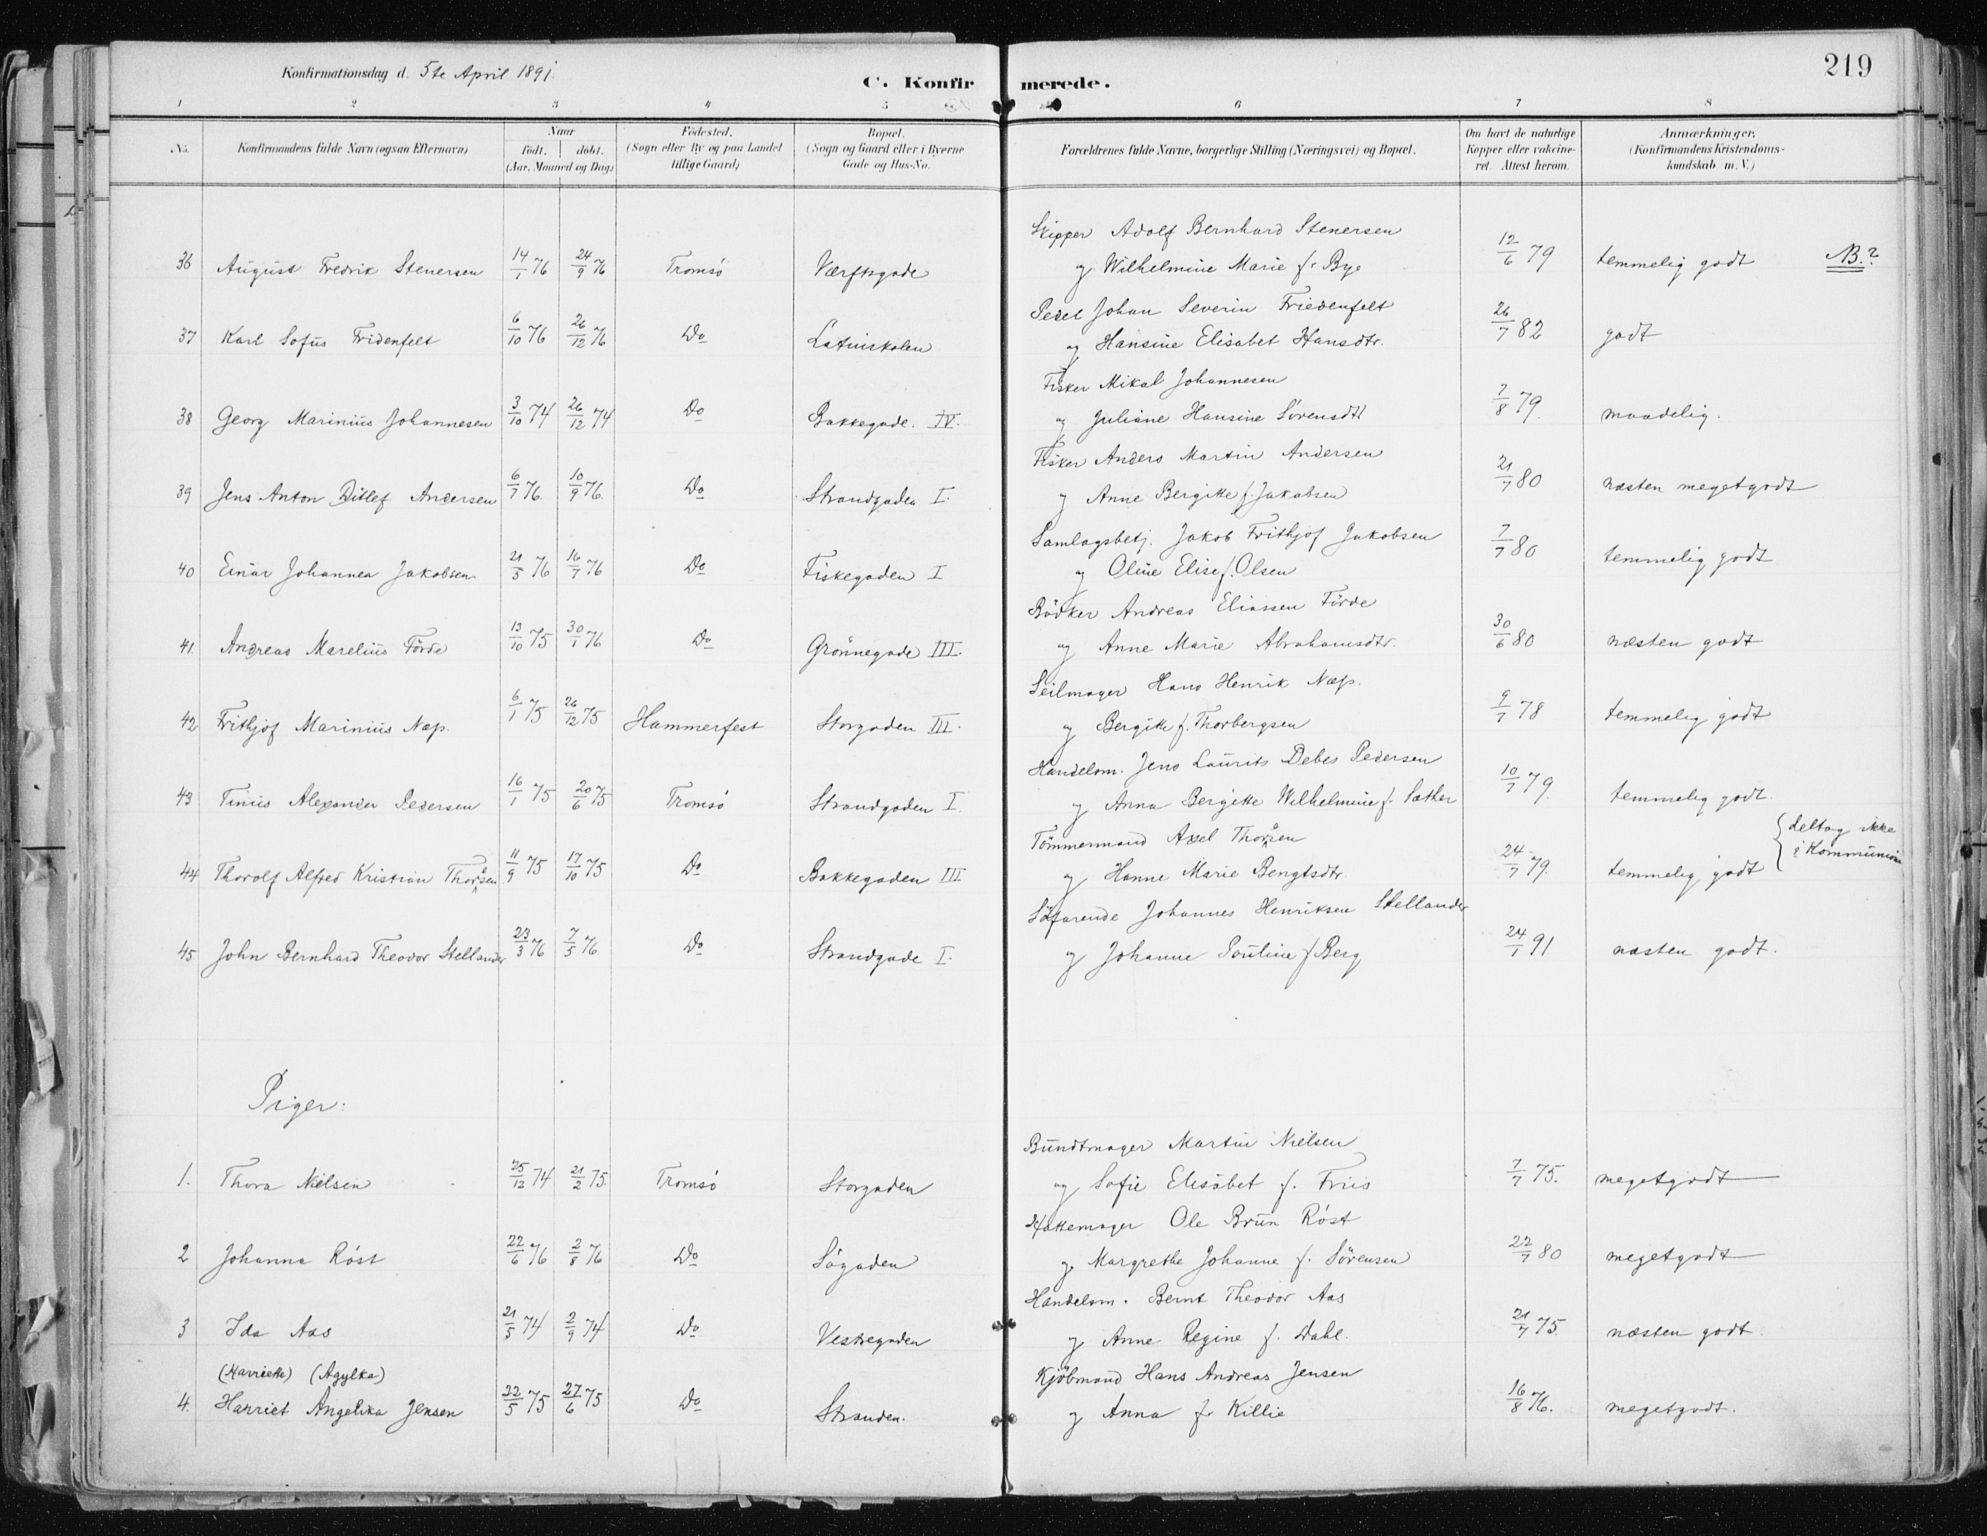 219
Konfirmationsdag d. 5te April 1891.
C. Konfirmerede.
1 2 3 4 5 6 7 8
No. Konfirmandens fulde Navn (ogsaa Efternavn) Naar født, døbt. (Aar, Maaned og Dag) Fødested. (Sogn eller By og paa Landet tillige Gaard) Bopæl. (Sogn og Gaard eller i Byerne Gade og Hus-No. Forældrenes fulde Navne, borgerlige Stilling (Næringsvei) og Bopæl. Om havt de naturlige Kopper eller vakcineret. Attest herom. Anmærkninger. (Konfirmandens Kristendomskundskab m. V.)
Skipper Adolf Bernhard Stenersen
36 August Fredrik Stenersen 14/1 76 24/9 76 Tromsö Værftsgade og Wilhelmine Marie f. Bye 12/6 79 temmelig godt NB.?
Pedel Johan Severin Friedenfelt
37 Karl Sofus Fridenfelt 6/10 76 26/12 76 Do Latinskolen og Hansine Elisabet Hansdtr. 26/7 82 godt
Fisker Mikal Johannesen
38 Georg Marinius Johannesen 3/10 74 26/12 74 Do Bakkegade. IV. og Juliane Hansine Sørensdtr 7/8 79. maadelig.
Fisker Anders Martin Andersen
39 Jens Anton Ditlef Andersen 6/7 76. 10/9 76. Do Strandgaden I. og Anne Bergitte f. Jakobsen 21/7 80 næsten megetgodt
Samlagsbetj. Jakob Frithjof Jakobsen
40 Einar Johannea Jakobsen 21/5 76 16/7 76 Do Fiskegaden I og Oline Elise f. Olsen 7/7 80 temmelig godt
Bödker Andreas Eliassen Förde
41. Andreas Marelius Förde 13/10 75 30/1 76 Do Grönnegade III. og Anne Marie Abrahamsdtr. 30/6 80 næsten godt
Seilmager Hans Henrik Næss.
42 Frithjof Marinius Næss. 6/1 75 26/12 75 Hammerfest Storgaden III. og Bergitte f. Thorbergsen 9/7 78 temmelig godt
Handelsm. Jens Laurits Debes Pedersen
43 Tinius Alexander Pedersen 16/1 75 20/6 75 Tromsö Strandgaden I. og Anna Bergitte Wilhelmine f. Sæther 10/7 79. temmelig godt.
Tömmermand Axel Thorsen
44 Thorolf Alfred Kristian Thorsen 11/9 75 17/10 75 Do Bakkegaden III og Hanne Marie Bengtsdtr. 24/7 79. temmelig godt { deltog ikke i Kommunion
Söfarende Johannes Henriksen Stellander
45 John Bernhard Theodor Stellander 23/3 76 7/5 76 Do Strandgade I. og Johanne Pouline f. Berg 24/1 91. næsten godt.
Piger:
Bundtmager Martin Nielsen
1. Thora Nielsen 25/12 74 21/2 75. Tromsö Storgaden og Sofie Elisabet f. Friis 7/7 75. megetgodt
Hattemager Ole Brun Röst
2 Johanna Röst 22/6 76 2/8 76 Do Sögaden og Margrethe Johanne f. Sörensen 22/7 80 megetgodt
Handelsm. Bernt Theodor Aas
3 Ida Aas 21/5 74 2/9 74 Do Vestregaden og Anne Regine f. Dahl. 21/7 75. næsten godt.
(Harriette) (Agylka) Kjöbmand Hans Andreas Jensen
4. Harriet Angelika Jensen 22/5 75 27/6 75 Do Stranden. og Anna f. Killie 16/8 76. megetgodt.